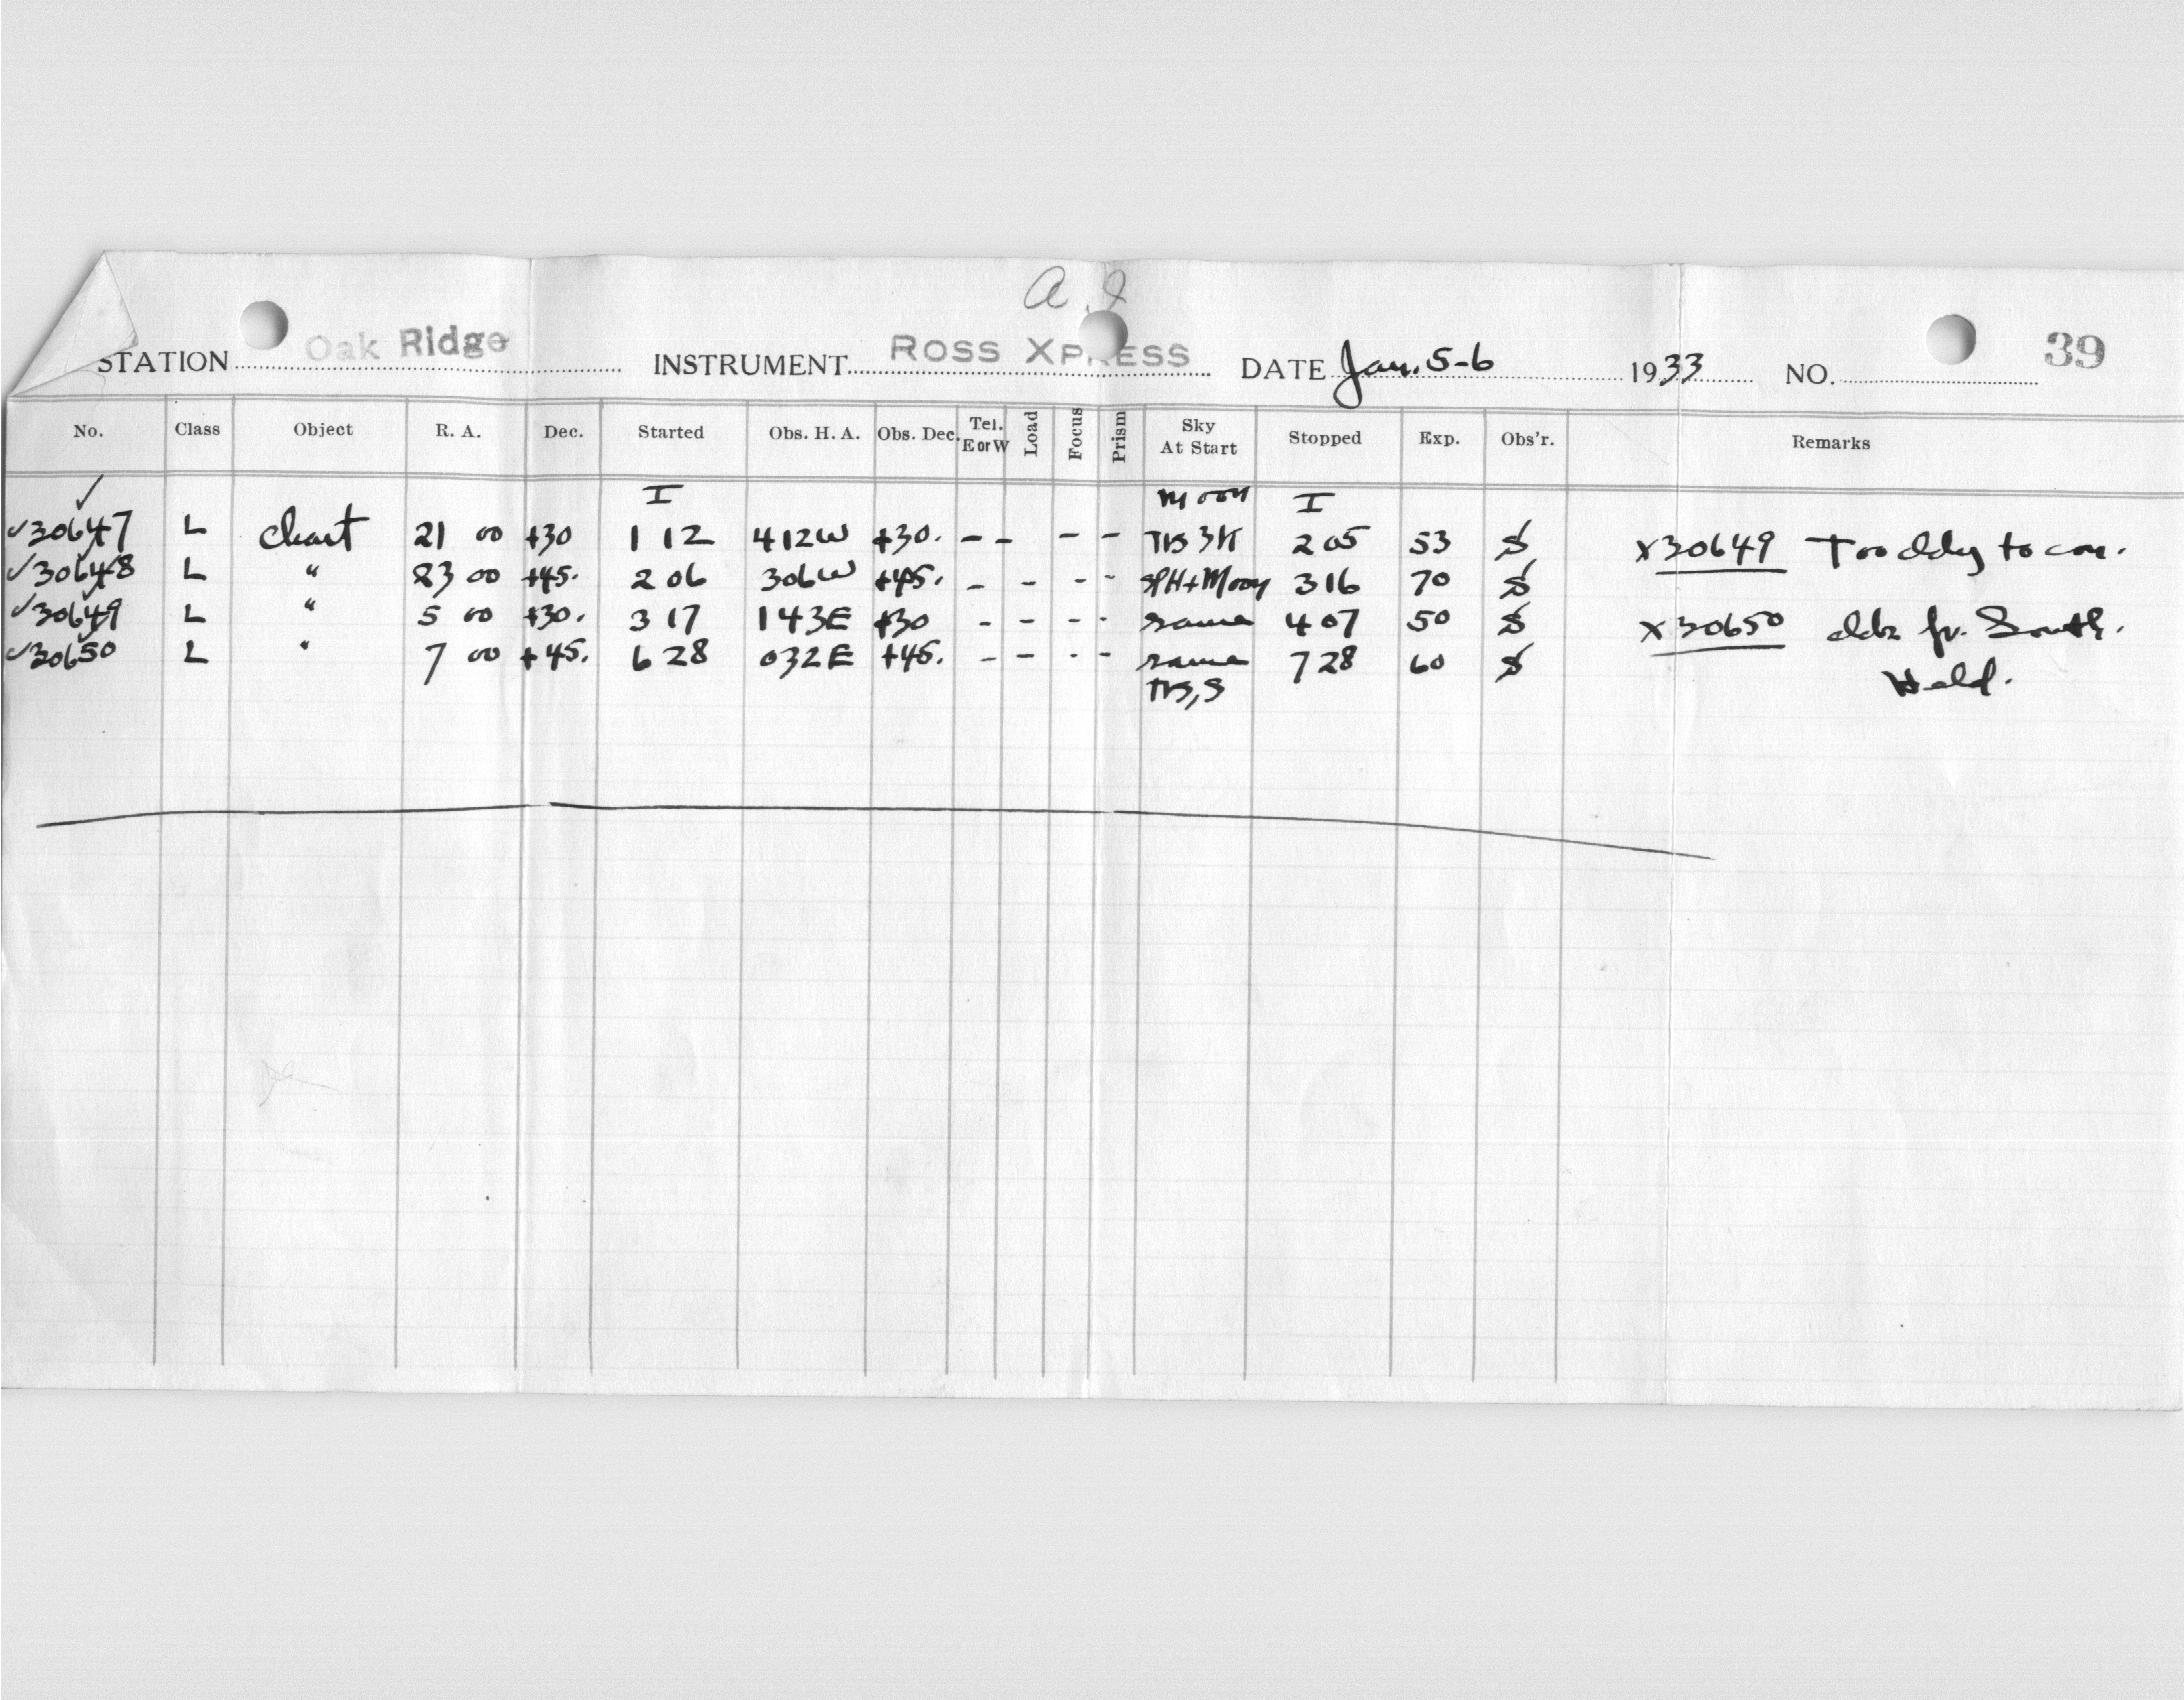 A. I
STATION Oak Ridge INSTRUMENT ROSS XPRESS DATE Jan. 5-6 1933 NO. 39
No. Class Object R. A. Dec. Started Obs. H. A. Obs. Dec. Tel. E or W Load Focus Prism Sky At Start Stopped Exp. Obs'r. Remarks
✓ I Moon I
✓30647 L Chart 21 00 +30 1 12 412W +30. - - - - 205 53 S x30649 Too cldy to con.
✓30648 L " 23 00 +45. 2 06 306W +45. - - - - SPH+Moon 316 70 S
✓30649 L " 5 00 +30. 3 17 143E +30 - - - - same 407 50 S x30650 cldz fr. South.
✓30650 L " 7 00 +45. 6 28 032E +45. - - - - same 728 60 S Held.